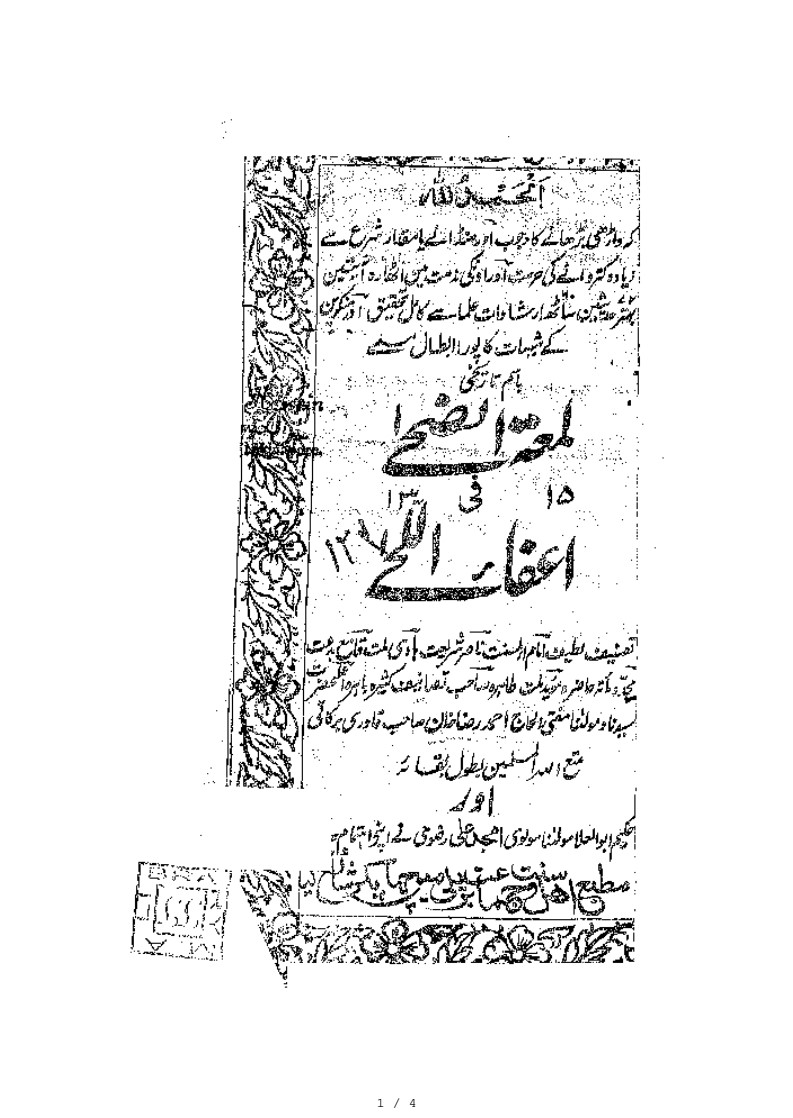 الحمد للہ
کہ داڑھی بڑھانے کا وجوب اور منڈانے یا مقدار شرع سے
زیادہ کتروانے کی حرمت اور اس کی مذمت میں اٹھارہ آیتیں
بہتر حدیثیں ساٹھ ارشادات علما سے کامل تحقیق اور منکرین
کے شبہات کا پورا ابطال
باسم تاریخی
لمعۃ الضحےٰ
۱۵ فی ۱۳
اعفاء اللحے
تصنیف لطیف امام اہلسنت ناصر شریعت ہادی ملت قامع بدعت
مجدد مأتہ حاضرہ مؤید ملت طاہرہ صاحب تصانیف کثیرہ باہرہ اعلیٰحضرت
سیدنا و مولٰنا مفتی الحاج احمد رضا خان صاحب قادری برکاتی
متع اللہ المسلمین بطول بقائہ
اور
حکیم ابوالعلا مولٰنا مولوی امجد علی رضوی نے اپنے اہتمام سے
مطبع اہل سنت و جماعت بریلی میں چھاپ کر شائع کیا
1 / 4